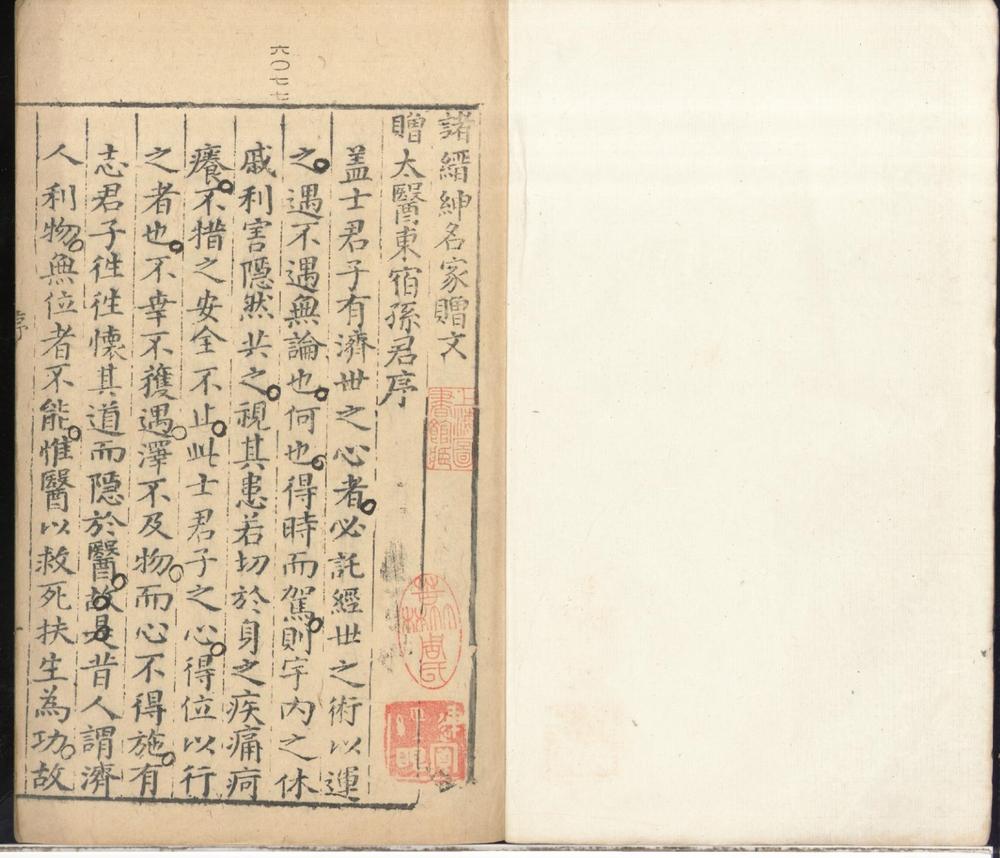 六〇七七
諸縉紳名家贈文
贈太醫東宿孫君序
盖士君子有濟世之心者必託經世之術以運
之遇不遇無論也何也得時而駕則宇内之休
戚利害隱然共之視其患若切於身之疾痛疴
癢不措之安全不止此士君子之心得位以行
之者也不幸不獲遇澤不及物而心不得施有
志君子徃徃懷其道而隱於醫故是昔人謂濟
人利物無位者不能惟醫以救死扶生為功故
序
上海圖書館藏